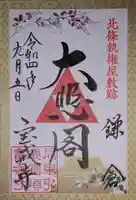 北條執權屋敷跡
鎌倉
大悲閣
令和四年
九月五日
宝戒寺